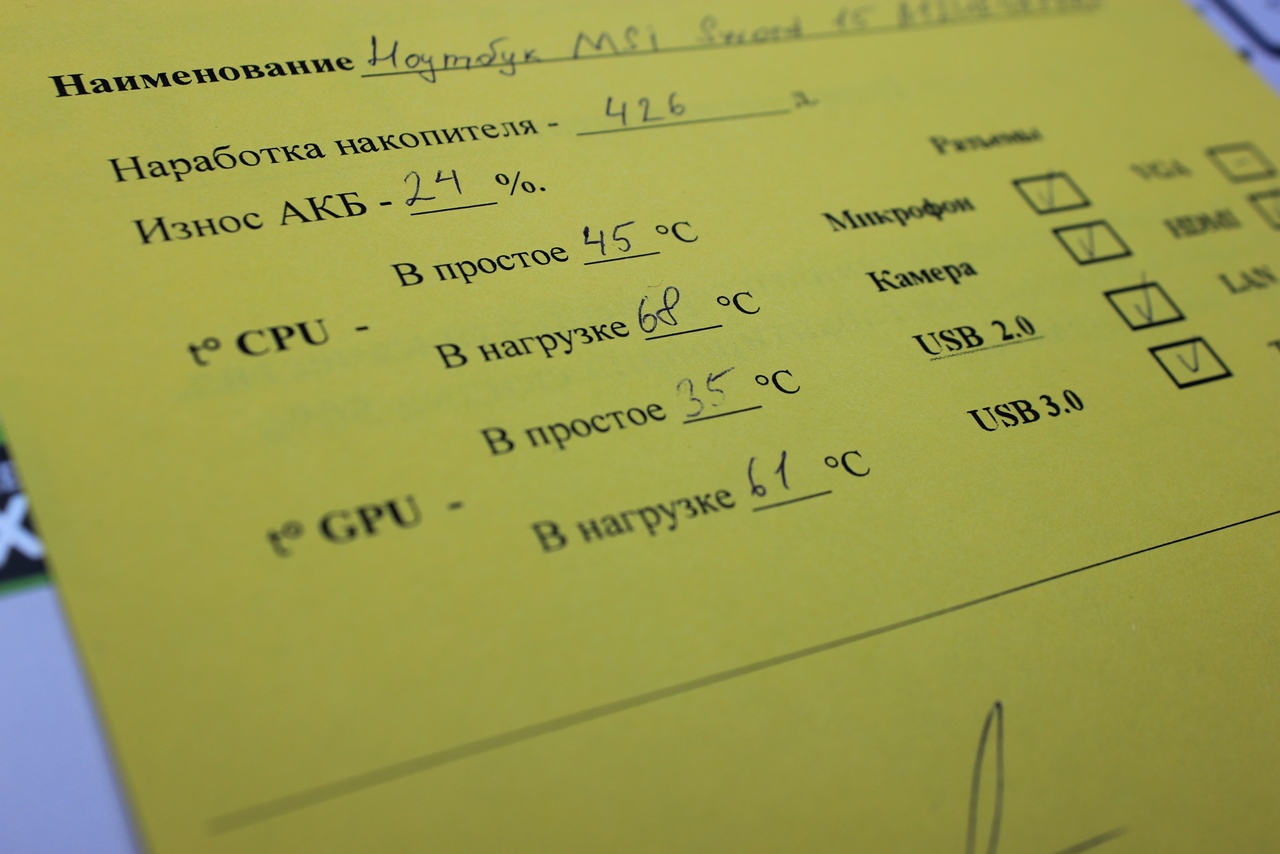 Наименование Ноутбук MSI Sword 15
Наработка накопителя - 426
Износ АКБ - 24 %.
Разъемы
t° CPU -
В простое 45 °C
В нагрузке 68 °C
t° GPU -
В простое 35 °C
В нагрузке 61 °C
Микрофон
Камера
USB 2.0
USB 3.0
VGA
HDMI
LAN
X